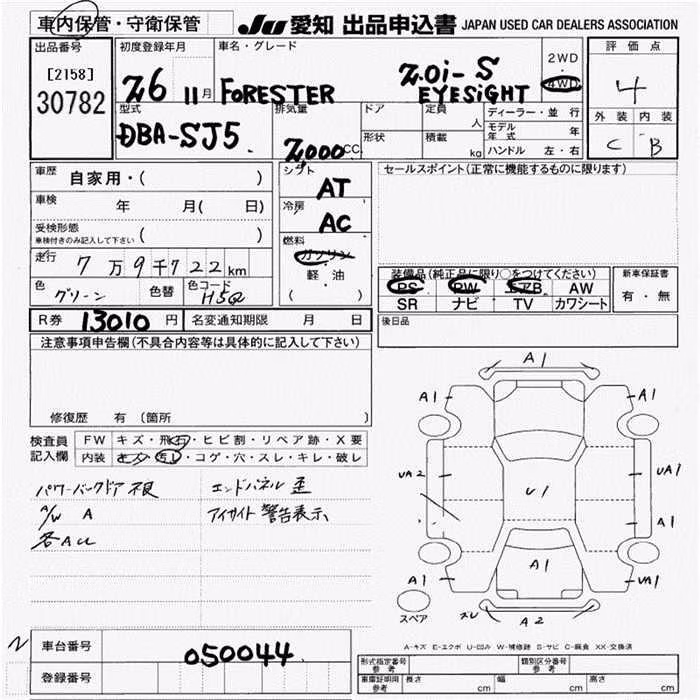 車内保管・守衛保管
JU 愛知 出品申込書 JAPAN USED CAR DEALERS ASSOCIATION
出品番号
[2158]
30782
初度登録年月
26 11月
車名・グレード
FORESTER
2.0i-S
EYESiGHT
2WD
4WD
評価点
4
外装 内装
C B
型式
DBA-SJ5
排気量
2,000CC
ドア
定員
人
形状
積載
kg
ディーラー・並行
モデル年式 年
ハンドル 左・右
車歴 自家用・( )
車検 年 月( 日)
受検形態
車検付きのみ記入して下さい ( )
走行 7万9千722km
色 グリーン
色替
色コード H5Q
シフト
AT
冷房
AC
燃料
ガソリン
・
軽・油
( )
セールスポイント(正常に機能するものに限ります)
装備品(純正品に限り○をつけてください)
PS PW エアB AW
SR ナビ TV カワシート
新車保証書
有・無
R券 13010円
名変通知期限 月 日
後日品
注意事項申告欄(不具合内容等は具体的に記入して下さい)
修復歴 有(箇所 )
検査員記入欄
FW キズ・飛石・ヒビ割・リペア跡・X要
内装 キズ・汚レ・コゲ・穴・スレ・キレ・破レ
パワーバックドア 不良
エンドパネル 歪
A/W A
アイサイト 警告表示
各AU
A1
A1 A1
UA2 U1 UA1
A1
A1 A1 UA1
スペア
ズレ A2
A-キズ E-エクボ U-凹み W-補修跡 S-サビ C-腐食 XX-交換済
車台番号 050044
登録番号
形式指定番号
参考
類別区分番号
参考
車庫証明用
参考
長さ cm 幅 cm 高さ cm